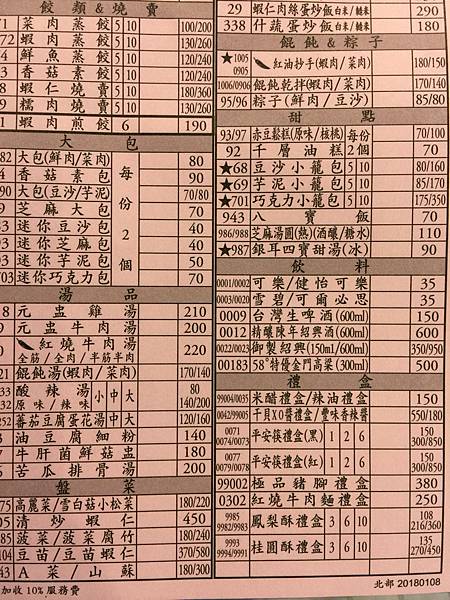 餃類&燒賣
71 菜肉蒸餃 5 10 100/200
72 蝦肉蒸餃 5 10 130/260
4 鮮魚蒸餃 5 10 120/240
3 香菇素餃 5 10 120/240
8 蝦仁燒賣 5 10 180/360
9 糯肉燒賣 5 10 130/260
1 蝦肉煎餃 6 190
大包
82 大包(鮮肉/菜肉) 每份2個 80
4 香菇素包 90
90 大包(豆沙/芋泥) 70/80
9 芝麻大包 70
43 迷你豆沙包 40
33 迷你芝麻包 40
43 迷你芋泥包 50
703 迷你巧克力包 70
湯品
8 元盅雞湯 210
9 元盅牛肉湯 200
0 紅燒牛肉湯 全筋/全肉/半筋半肉 220
21 餛飩湯(蝦肉/菜肉) 170/140
33 32 酸辣湯 原味/辣味 小中大 80 140/200
252 蕃茄豆腐蛋花湯 中大 120/160
3 油豆腐細粉 140
7 牛肝菌鮮菇盅 180
6 苦瓜排骨湯 200
盤菜
75 高麗菜/雪白菇小松菜 180/220
05 清炒蝦仁 450
85 菠菜/菠菜腐竹 180/240
104 豆苗/豆苗蝦仁 370/580
43 A菜/山蘇 180/300
加收10%服務費
29 蝦仁肉絲蛋炒飯 白米/糙米 290
338 什蔬蛋炒飯 白米/糙米 180
餛飩&粽子
★1005 0905 紅油抄手(蝦肉/菜肉) 180/150
1006/0906 餛飩乾拌(蝦肉/菜肉) 170/140
95/96 粽子(鮮肉/豆沙) 85/80
甜點
93/97 赤豆鬆糕(原味/核桃) 每份 70/100
92 千層油糕2個 70
★68 豆沙小籠包 5 10 80/160
★69 芋泥小籠包 5 10 85/170
★701 巧克力小籠包 5 10 175/350
943 八寶飯 70
986/988 芝麻湯圓(熱)(酒釀/糖水) 110
★987 銀耳四寶甜湯(冰) 90
飲料
0001/0002 可樂/健怡可樂 35
0003/0020 雪碧/可爾必思 35
0009 台灣生啤酒(600ml) 150
0012 精釀陳年紹興酒(600ml) 600
0022/0023 御製紹興(150ml/600ml) 350/950
00183 58°特優金門高粱(300ml) 500
禮盒
99004/0035 米醋禮盒/辣油禮盒 150
0042/99005 干貝XO醬禮盒/豐味香辣醬 550/180
0071 0074/0073 平安筷禮盒(黑) 1 2 6 150 300/850
0077 0079/0078 平安筷禮盒(紅) 1 2 6 150 300/850
99002 極品豬腳禮盒 380
0302 紅燒牛肉麵禮盒 250
9985 9982/9983 鳳梨酥禮盒 3 6 10 108 216/360
9993 9994/9991 桂圓酥禮盒 3 6 10 135 270/450
北部 20180108